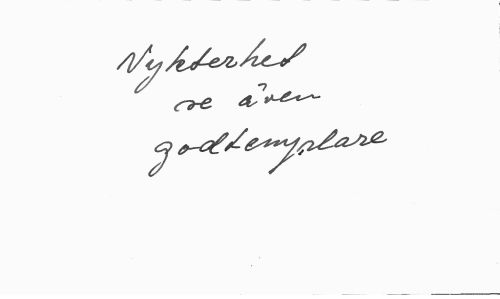 Nykterhet
se även
godtemplare